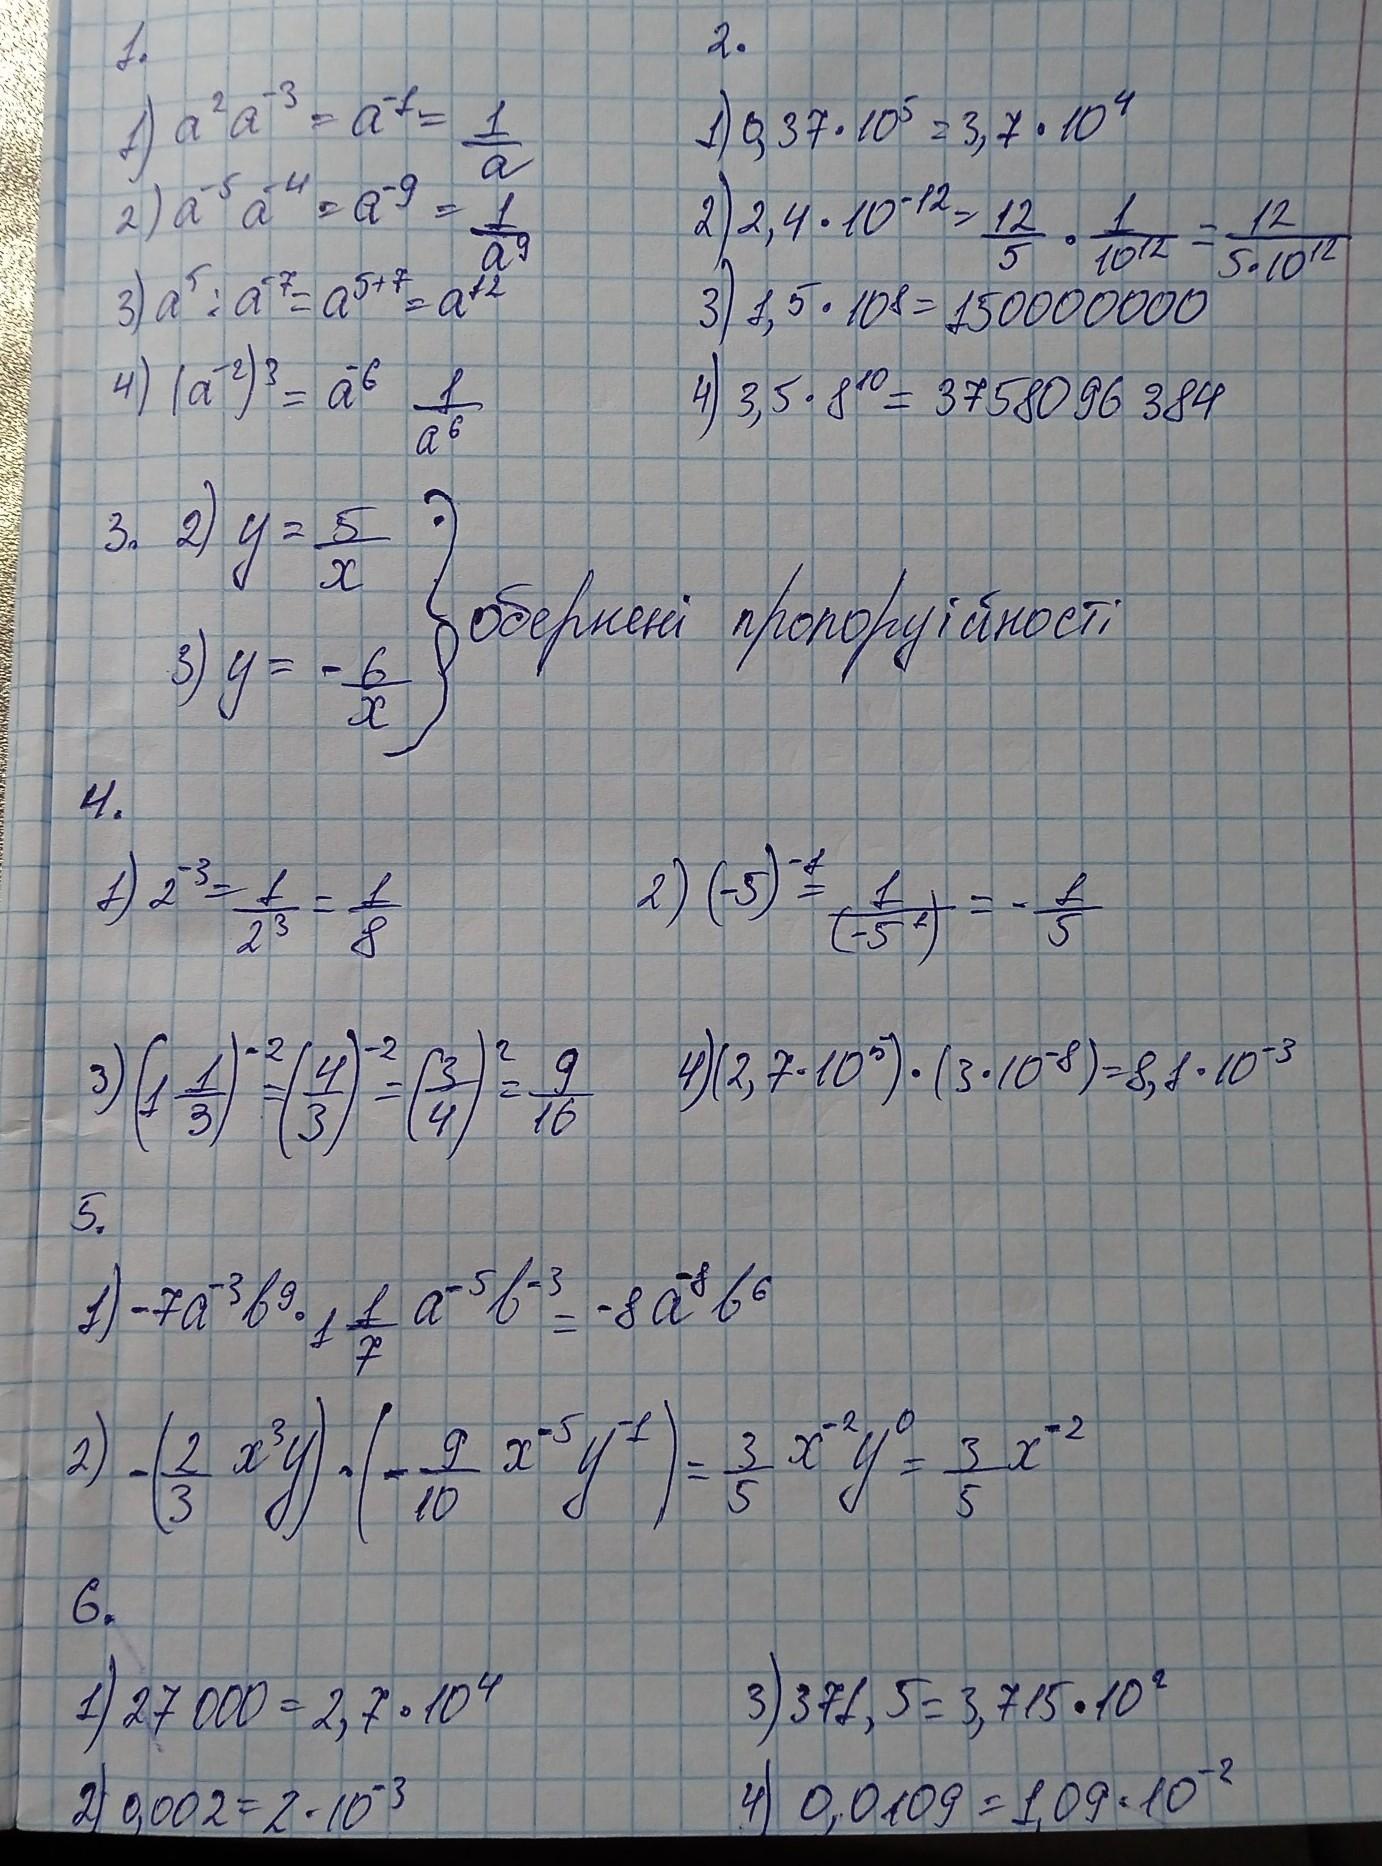 1.
1) a² a⁻³ = a⁻¹ = 1/a
2) a⁻⁵ a⁻⁴ = a⁻⁹ = 1/a⁹
3) a⁵ : a⁻⁷ = a⁵⁺⁷ = a¹²
4) (a⁻²)³ = a⁻⁶ 1/a⁶
2.
1) 0,37 · 10⁵ = 3,7 · 10⁴
2) 2,4 · 10⁻¹² = 12/5 · 1/10¹² = 12/(5 · 10¹²)
3) 1,5 · 10⁸ = 150000000
4) 3,5 · 8¹⁰ = 3758096384
3. 2) y = 5/x
3) y = - 6/x
} обернені пропорційності
4.
1) 2⁻³ = 1/2³ = 1/8
2) (-5)⁻¹ = 1/(-5¹) = - 1/5
3) (1 1/3)⁻² = (4/3)⁻² = (3/4)² = 9/16
4) (2,7 · 10⁵) · (3 · 10⁻⁸) = 8,1 · 10⁻³
5.
1) -7a⁻³b⁹ · 1 1/7 a⁻⁵b⁻³ = -8a⁻⁸b⁶
2) -(2/3 x³y) · (- 9/10 x⁻⁵y⁻¹) = 3/5 x⁻²y⁰ = 3/5 x⁻²
6.
1) 27 000 = 2,7 · 10⁴
2) 0,002 = 2 · 10⁻³
3) 371,5 = 3,715 · 10²
4) 0,0109 = 1,09 · 10⁻²